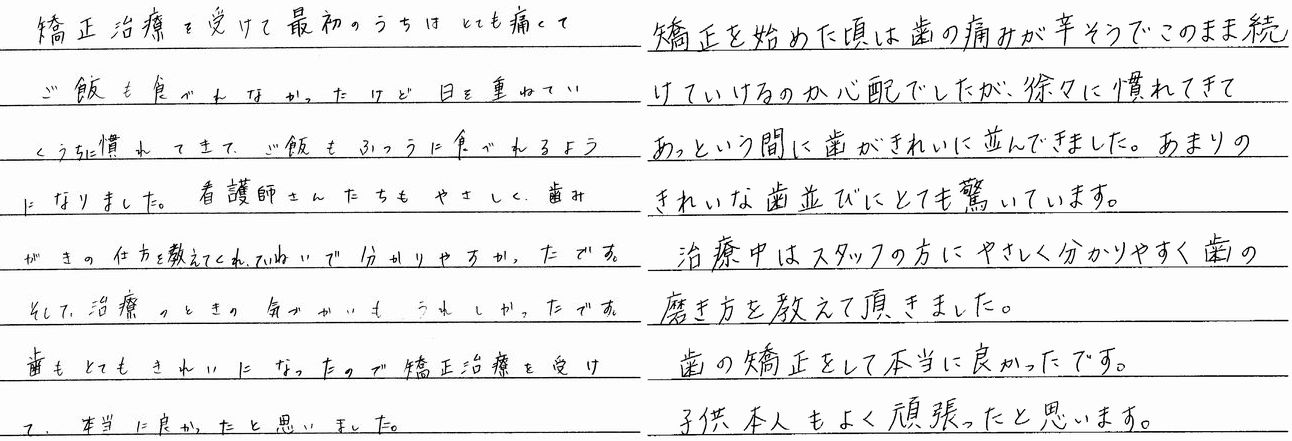 矯正治療を受けて最初のうちはとても痛くて
ご飯も食べれなかったけど日を重ねてい
くうちに慣れてきて、ご飯もふつうに食べれるよう
になりました。看護師さんたちもやさしく、歯み
がきの仕方を教えてくれ、ていねいで分かりやすかったです。
そして、治療のときの気づかいもうれしかったです。
歯もとてもきれいになったので矯正治療を受け
て、本当に良かったと思いました。
矯正を始めた頃は歯の痛みが辛そうでこのまま続
けていけるのか心配でしたが、徐々に慣れてきて
あっという間に歯がきれいに並んできました。あまりの
きれいな歯並びにとても驚いています。
治療中はスタッフの方にやさしく分かりやすく歯の
磨き方を教えて頂きました。
歯の矯正をして本当に良かったです。
子供本人もよく頑張ったと思います。